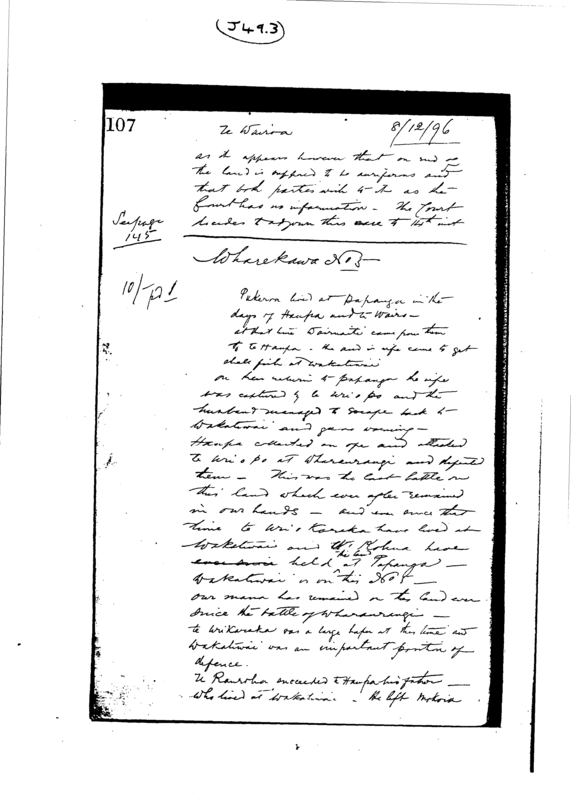 (J49.3)
107
Te Wairoa
8/12/96
as it appears however that on end
the land is supposed to be auriferous and
that both parties wish to as the
Court has no information - The Court
decides to adjourn this case to 14th inst
See page
145
Wharekawa No 5
10/-pd
lived at Papanga in the
days of Haupa and Te Wairo-
at that time came from
to Te Haupa. He and his wife came to get
shell fish at Wakatiwai
on her return to Papanga he wife
was captured by te Uri o po and the
husband managed to escape back to
Wakatiwai and gave warning -
Haupa collected an ope and attacked
te Uri o po at Wharaurangi and defeated
them - This was the last battle on
this land which ever after remained
in our hands - and ever since that
time te Uri Karaka have lived at
Wakatiwai and have
the land
held at Papanga -
Wakatiwai is on this No 5 -
our mana has remained on this land ever
since the battle of Wharaurangi -
te Uri Karaka was a large hapu at this time and
Wakatiwai was an important portion of
defence.
Te Rauroha succeeded to Haupa his father -
who lived at Wakatiwai - He left